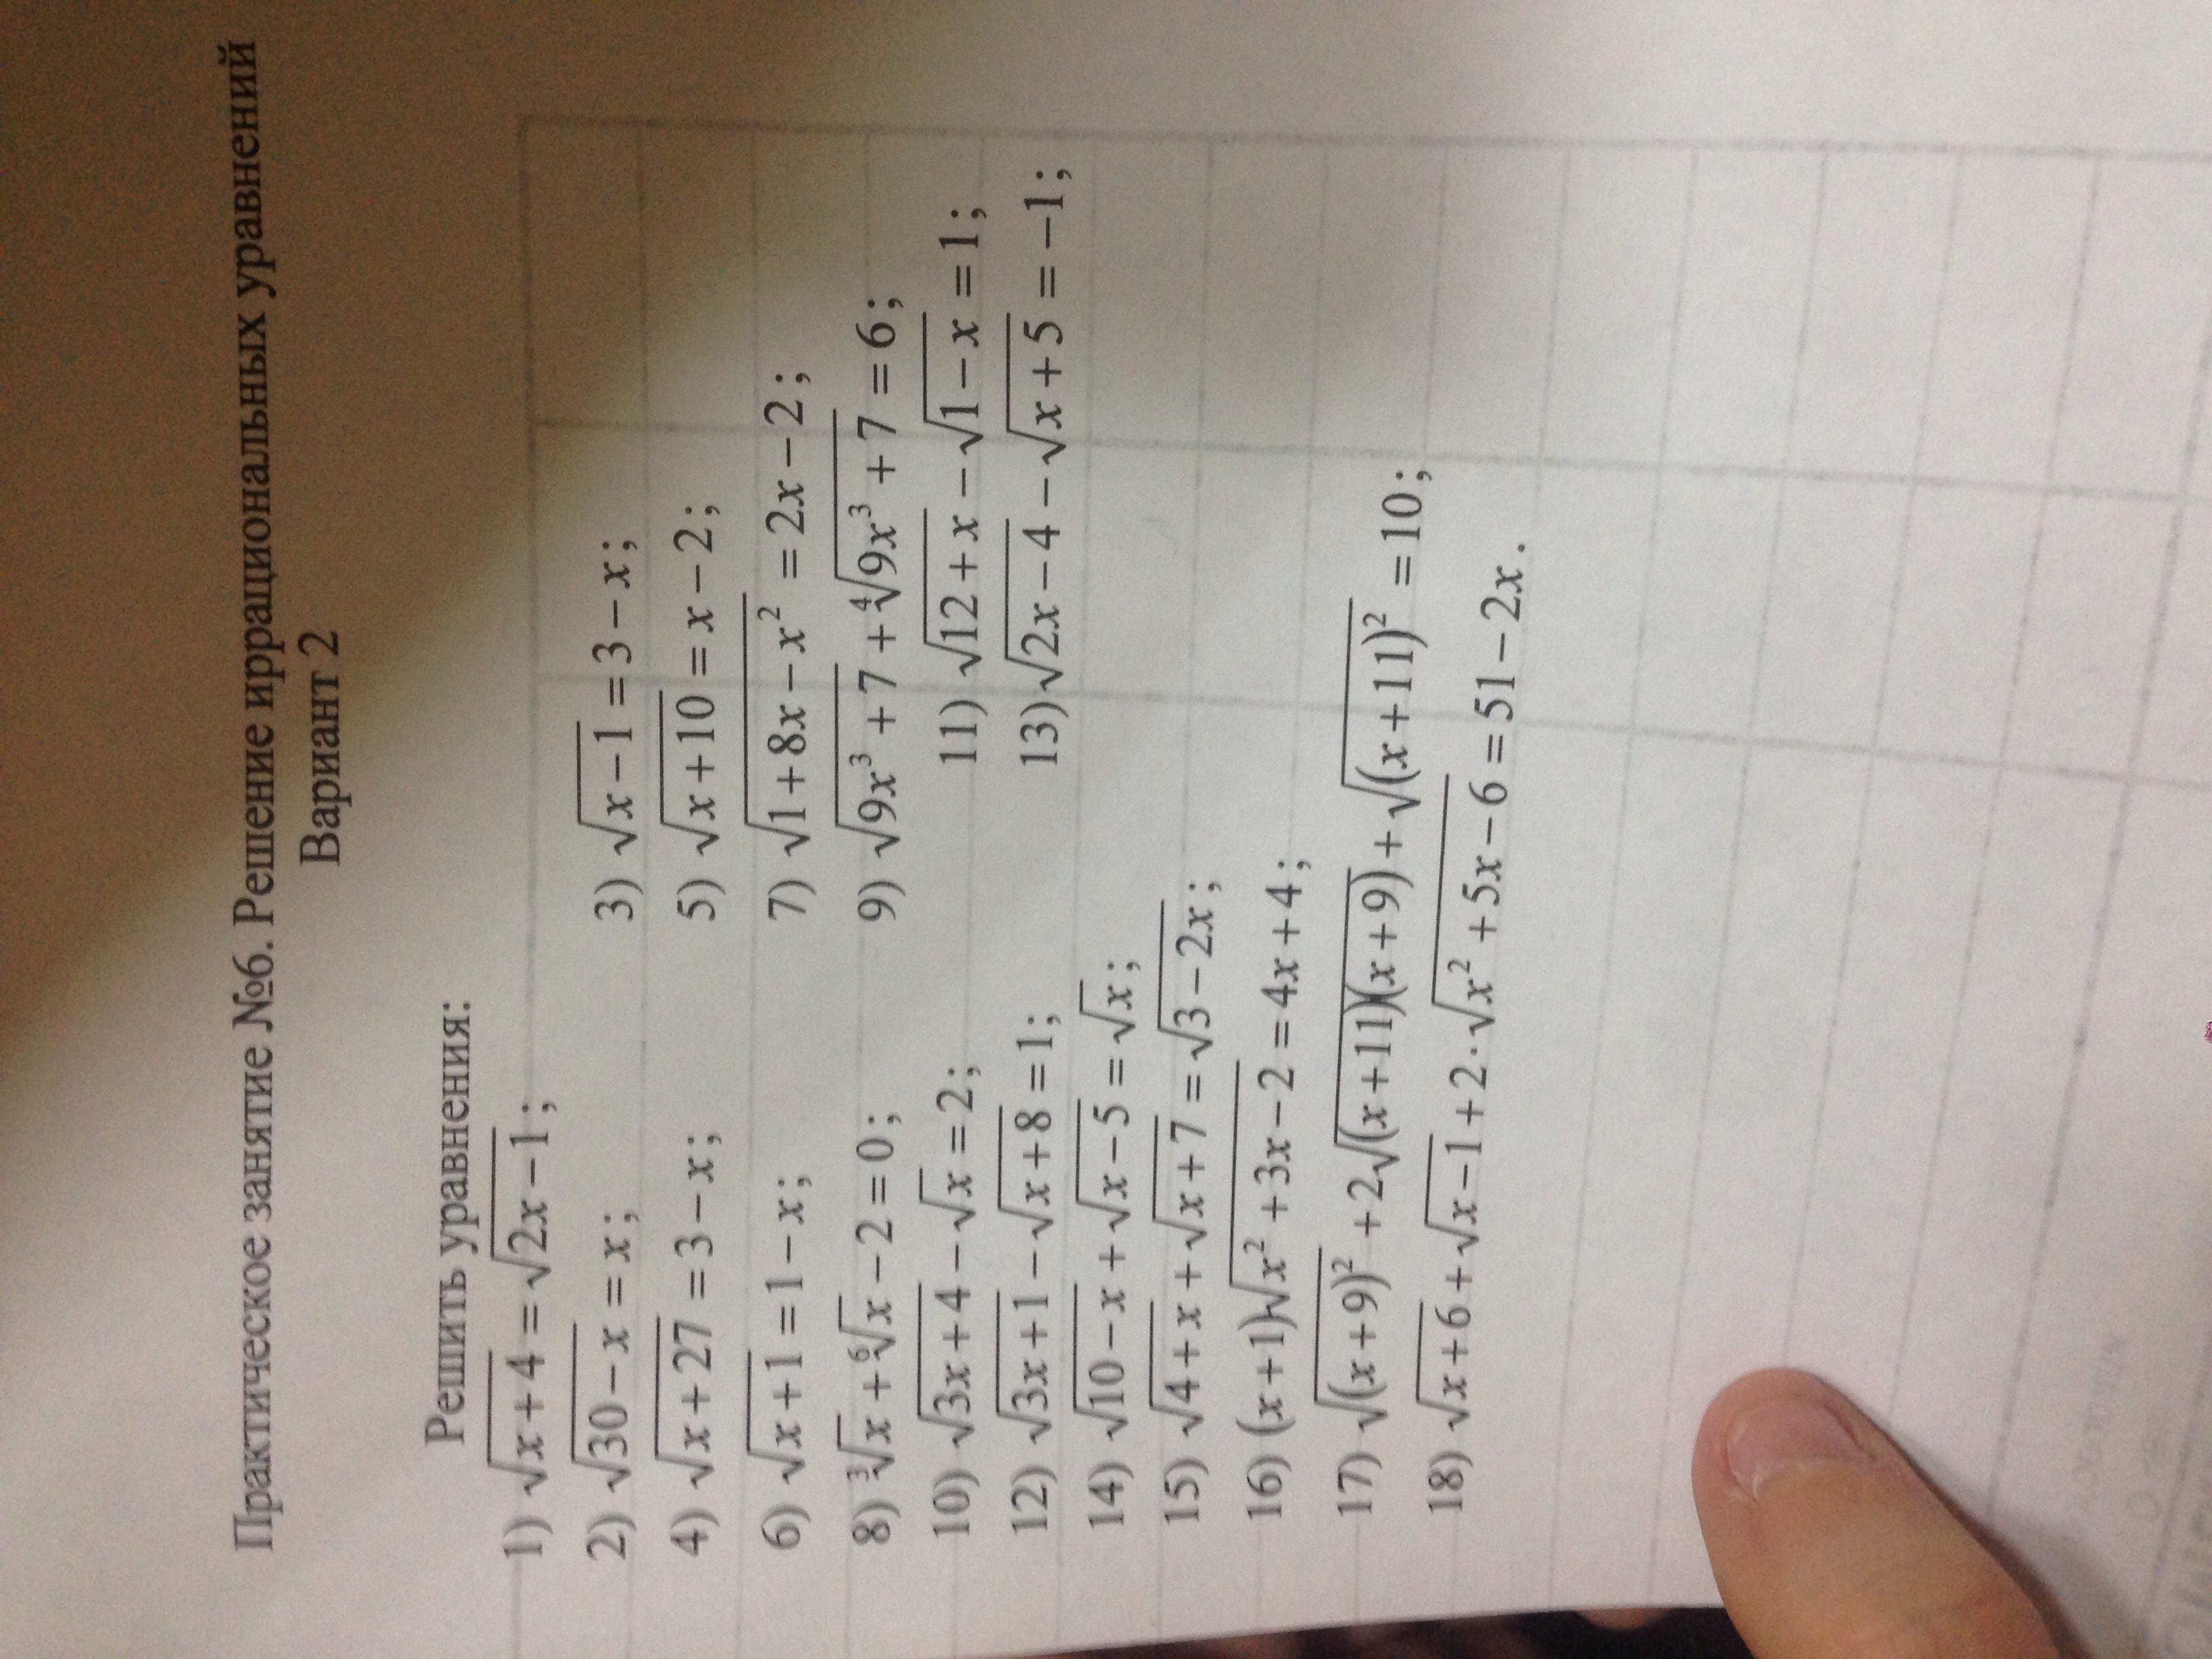 Практическое занятие №6. Решение иррациональных уравнений
Вариант 2
Решить уравнения:
1) √(x+4) = √(2x−1);
2) √(30−x) = x; 3) √(x−1) = 3−x;
4) √(x+27) = 3−x; 5) √(x+10) = x−2;
6) √(x+1) = 1−x; 7) √(1+8x−x²) = 2x−2;
8) ∛x + ⁶√x − 2 = 0; 9) √(9x³+7) + ⁴√(9x³+7) = 6;
10) √(3x+4) − √x = 2; 11) √(12+x) − √(1−x) = 1;
12) √(3x+1) − √(x+8) = 1; 13) √(2x−4) − √(x+5) = −1;
14) √(10−x) + √(x−5) = √x;
15) √(4+x) + √(x+7) = √(3−2x);
16) (x+1)√(x²+3x−2) = 4x+4;
17) √((x+9)²) + 2√((x+11)(x+9)) + √((x+11)²) = 10;
18) √(x+6) + √(x−1) + 2·√(x²+5x−6) = 51−2x.